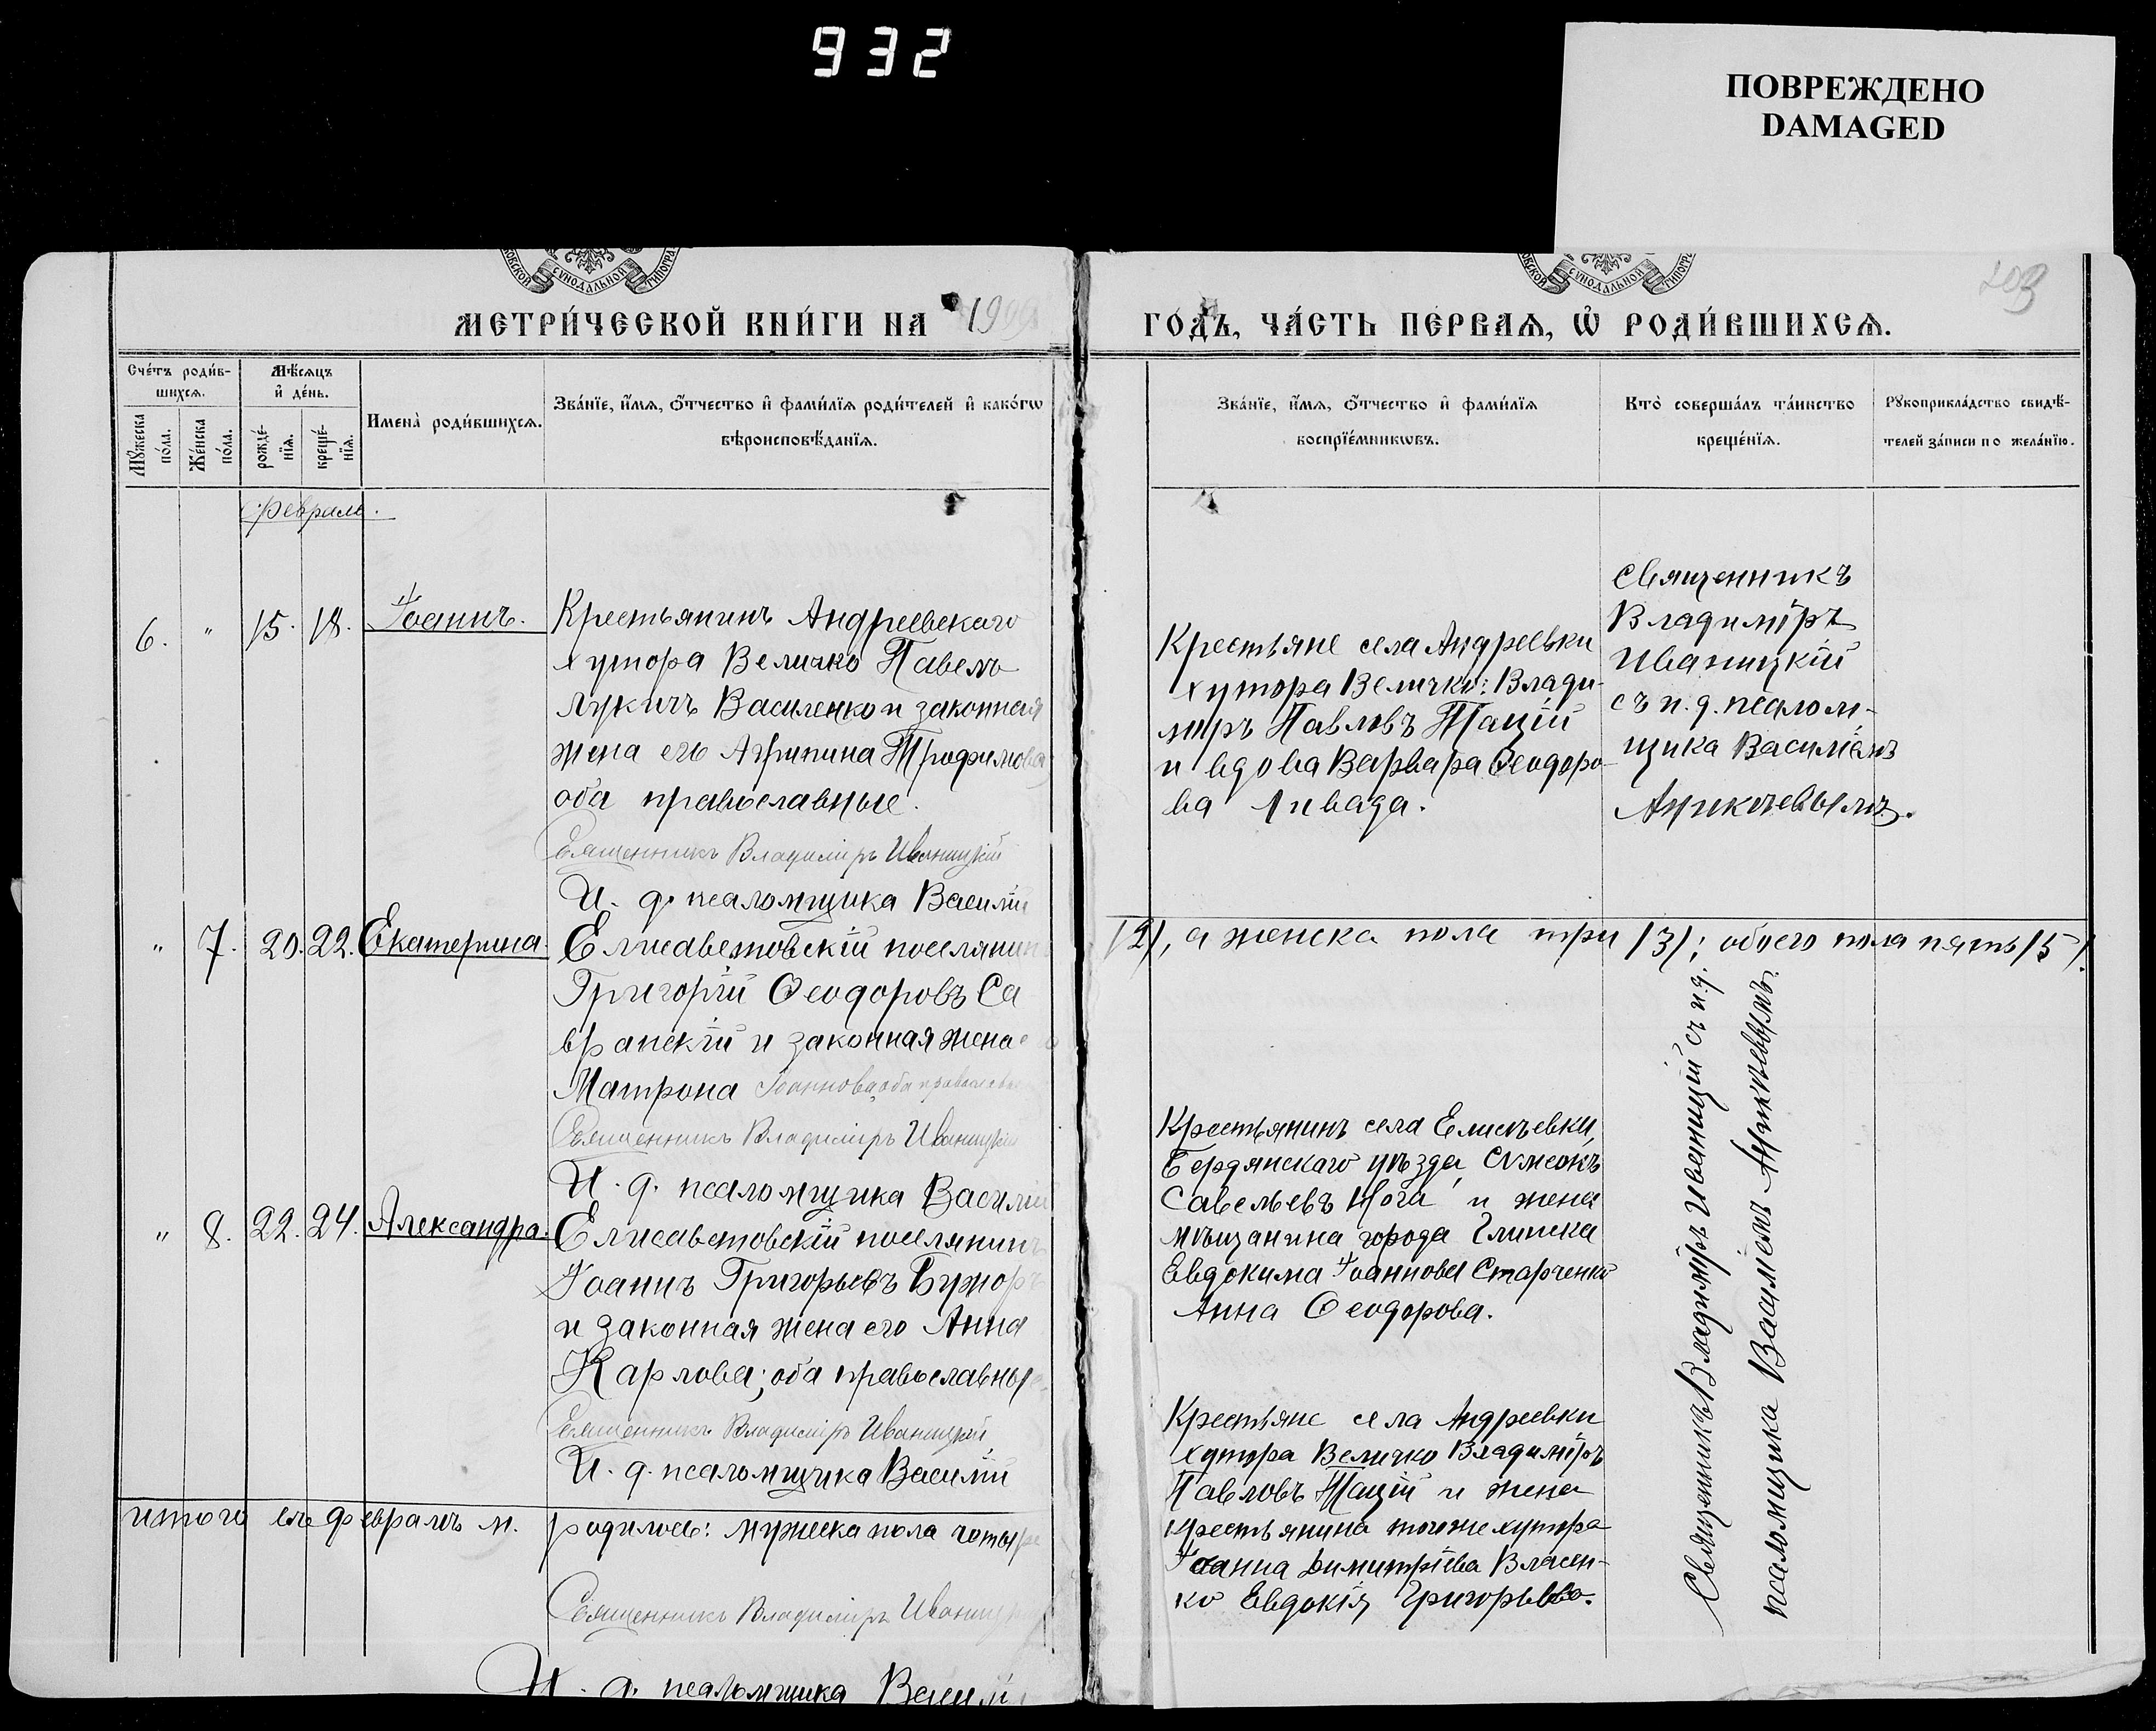 932
ПОВРЕЖДЕНО
DAMAGED
СѴНОДАЛЬНОЙ
СѴНОДАЛЬНОЙ
МЕТРИ́ЧЕСКОЙ КНИ́ГИ НА 19
ГО́ДЪ, ЧА́СТЬ ПЕ́РВАѦ, Ѡ҆ РОДИ́ВШИХСѦ.
Сче́тъ роди́в-
шихсѧ.
Мѣ́сѧцъ
и҆ де́нь.
Мꙋ́жеска
по́ла.
Же́нска
по́ла.
рожде́-
нїѧ.
креще́-
нїѧ.
Имена̀ роди́вшихсѧ.
Зва́нїе, и҆́мѧ, ѻ҆́тчество и҆ фами́лїѧ роди́телей и҆ како́гѡ
вѣроисповѣ́данїѧ.
Зва́нїе, и҆́мѧ, ѻ҆́тчество и҆ фами́лїѧ
воспрїе́мникѡвъ.
Кто̀ соверша́лъ та́инство
креще́нїѧ.
Рꙋкоприкла́дство свидѣ́-
телей за́писи по жела́нїю.
Февраль.
6. " 15. 18. Іоаннъ.
Крестьянинъ Андреевскаго
хутора Величко Павелъ
Лукичъ Василенко и законная
жена его Агрипина Трофимова
оба православные.
Священникъ Владиміръ Иваницкій
И. д. псаломщика Василій
Крестьяне села Андреевки
хутора Величко: Влади-
миръ Павловъ Тацій
и вдова Варвара Ѳеодоро-
ва Ливада.
Священникъ
Владиміръ
Иваницкій
съ и. д. псалом-
щика Василіемъ
Аникѣевымъ.
" 7. 20. 22. Екатерина.
Елисаветовскій поселянинъ
Григорій Ѳеодоровъ Са
вранскій и законная жена
Матрона Іоаннова, оба православ
Священникъ Владиміръ Иваницкій
И. д. псаломщика Василій
/2/, а женска пола три /3/; обоего пола пять /5/.
Крестьянинъ села Елисѣевки,
Бердянскаго уѣзда, Сѵмеонъ
Савельевъ Нога и жена
мѣщанина города Глинска
Евдокима Іоаннова Старченко
Анна Ѳеодорова.
" 8. 22. 24. Александра.
Елисаветовскій поселянинъ
Іоаннъ Григорьевъ Бужор
и законная жена его Анна
Карлова; оба православны
Священникъ Владиміръ Иваницкій
И. д. псаломщика Василій
Крестьяне села Андреевки
хутора Величко Владиміръ
Павловъ Тацій и жена
крестьянина тогоже хутора
Іоанна Димитріева Власен-
ко Евдокія Григорьева.
Священникъ Владиміръ Иваницкій съ и. д.
псаломщика Василіемъ Аникѣевымъ.
итого въ февралѣ м. родилось: мужеска пола четыре
Священникъ Владиміръ Иваницк
И. д. псаломщика Василій